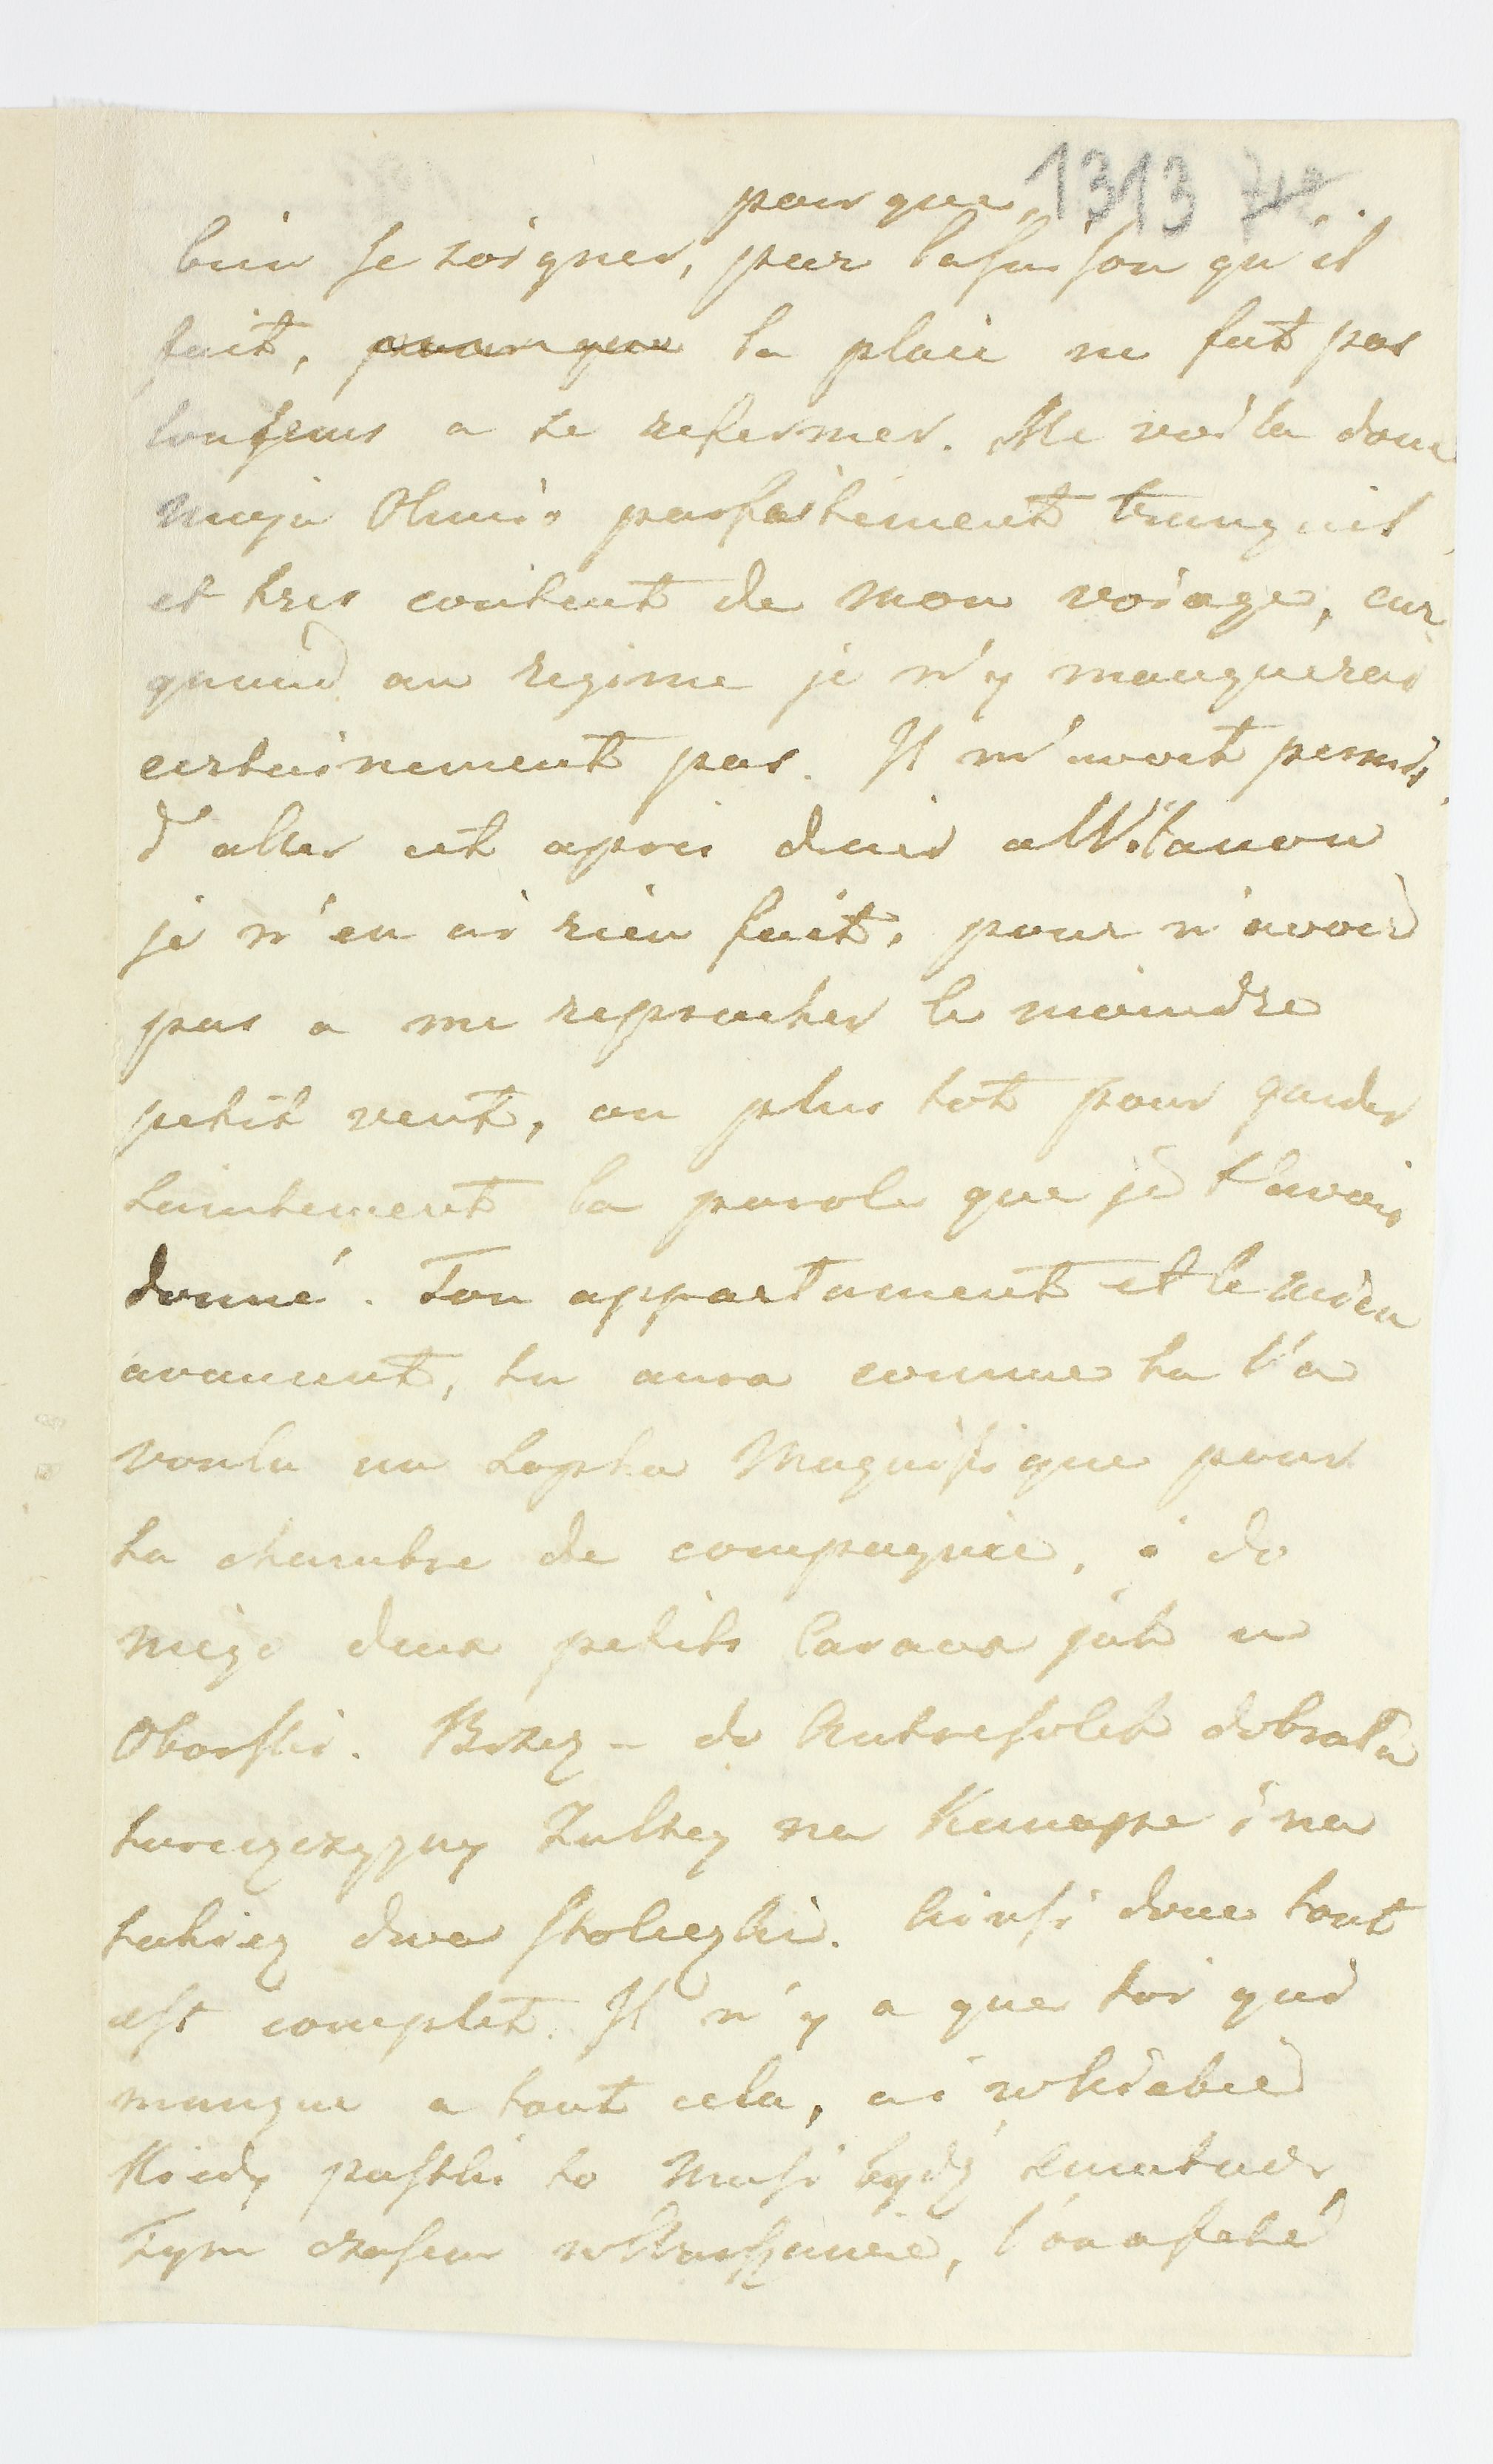 1313
pour que
bien se soigner, par la façon qu'il
fait, pour que la plaie ne fut pas
longtems a se refermer. Me voila donc
moja Olunio parfaitement tranquil
et tres content de mon voiage, car
quand au regime je n'y manquerai
certainement pas. Il m'avoit permis
d'aller cet apres diner a Wilanow
je n'en ai rien fait, pour n'avoir
pas a me reprocher le moindre
petit vent, ou plus tot pour garder
saintement la parole que je t'avois
donné. Ton appartament et le mien
avancent, tu aura comme tu l'a
voulu un sopha magnifique pour
ta chambre de compagnie, i do
niego deux petits jak u
Oborski. do Antresolek dobrala
na Kanape i na
takiez dwa stoleczki. Ainsi donc tout
est complet. Il n'y a que toi qui
manque a tout cela, ai w Kidebie
Kiedy pustki to musi bydz
Tym czasem w Warszawie, l'on a feté